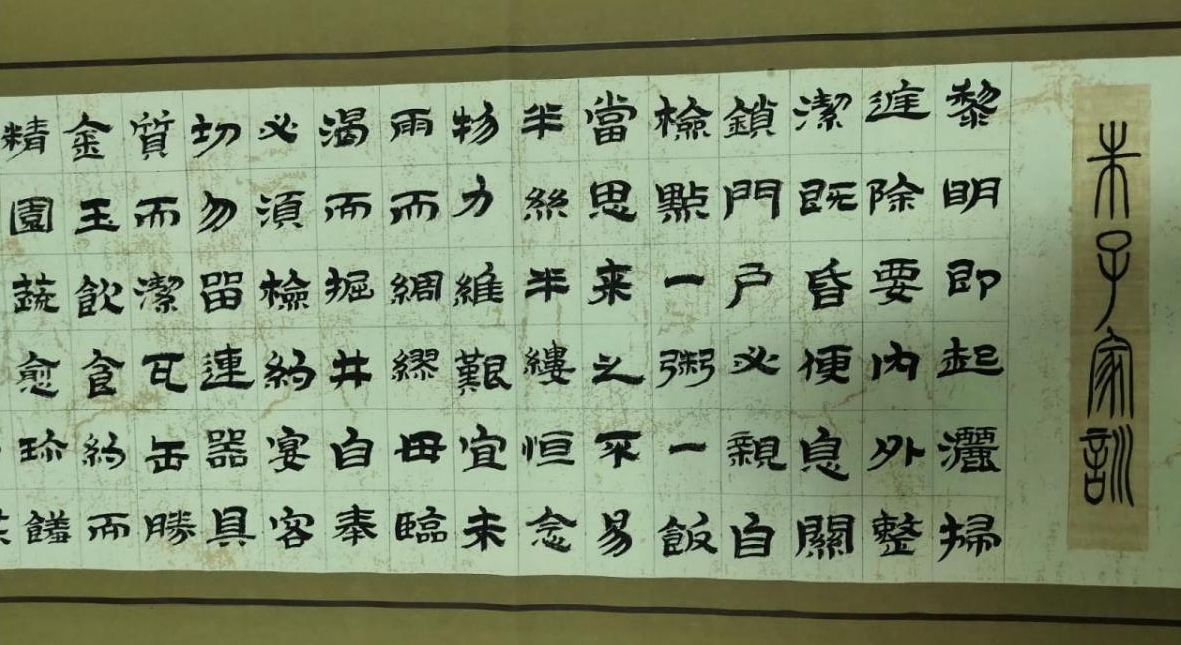 朱子家訓
黎明即起灑掃
庭除要内外整
潔既昏便息關
鎖門户必親自
檢點一粥一飯
當思来之不易
半絲半縷恒念
物力維艱宜未
雨而綢繆毋臨
渴而掘井自奉
必須檢約宴容
切勿留連器具
質而潔瓦缶勝
金玉飲食約而
精園蔬愈珍饈